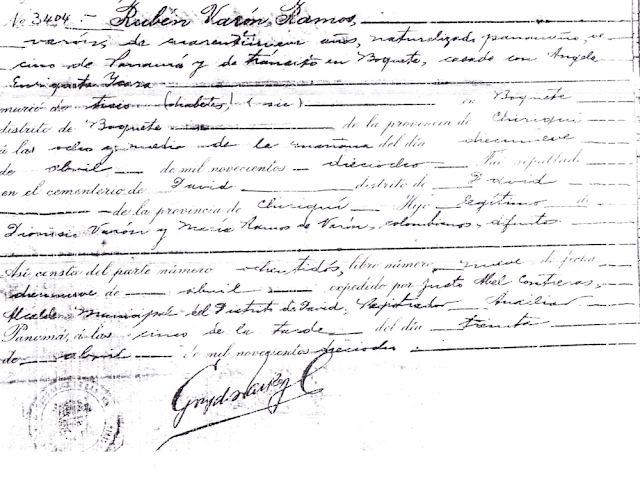 No 3404 - Rubén Varón Ramos,
varón, de cuarentinueve años, naturalizado panameño, ve
cino de Panamá y de tránsito en Boquete, casado con Angela
Enriqueta Icaza
murió de tisis (diabetes,) (sic) en Boquete
distrito de Boquete de la provincia de Chiriquí
á las ocho y media de la mañana del día diecinueve
de abril de mil novecientos dieciocho Fué sepultado
en el cementerio de David distrito de David
de la provincia de Chiriquí Hijo legítimo de
Dionisio Varón y María Ramos de Varón, colombianos, difuntos
Así consta del parte número ochentidós, libro número, nueve de fecha
diecinueve de abril expedido por Justo Abel Contreras,
Alcalde Municipal del Distrito de David, Registrador Auxiliar
Panamá, á las cinco de la tarde del día treinta
de abril de mil novecientos dieciocho